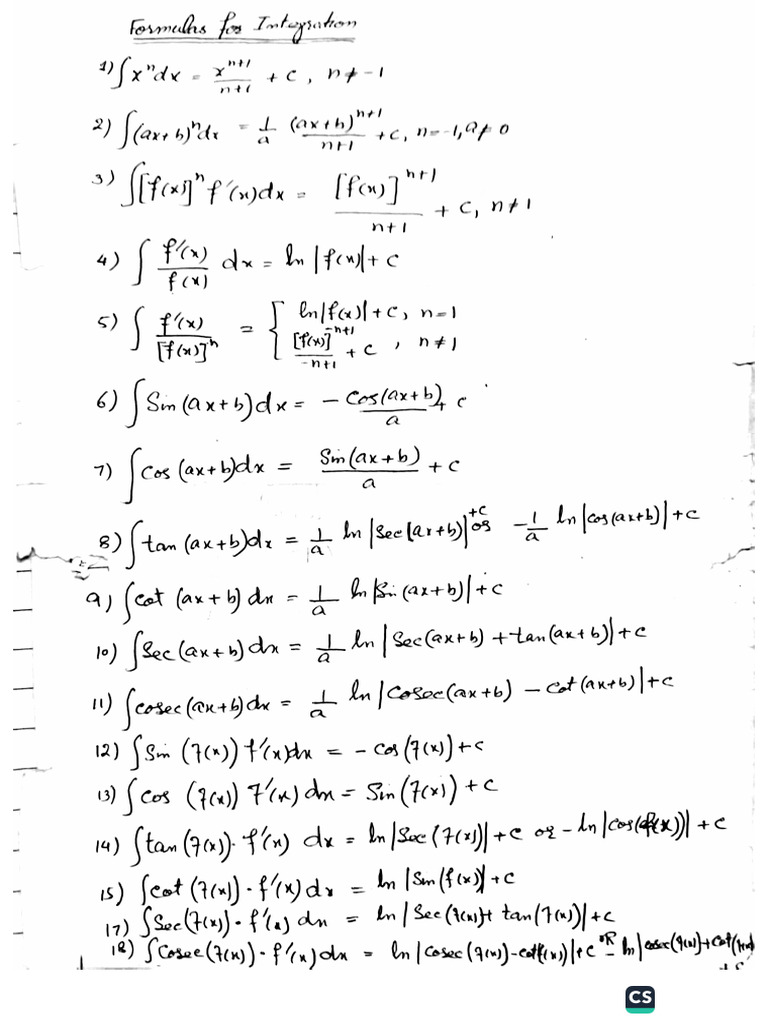 Formulas for Integration
1) ∫xⁿdx = xⁿ⁺¹/n+1 + c, n ≠ -1
2) ∫(ax+b)ⁿdx = 1/a (ax+b)ⁿ⁺¹/n+1 + c, n=-1, a≠0
3) ∫[f(x)]ⁿ f'(x)dx = [f(x)]ⁿ⁺¹/n+1 + c, n≠1
4) ∫ f'(x)/f(x) dx = ln|f(x)| + c
5) ∫ f'(x)/[f(x)]ⁿ = { ln|f(x)| + c, n=1
[f(x)]⁻ⁿ⁺¹/-n+1 + c, n≠1
6) ∫Sin(ax+b)dx = - Cos(ax+b)/a + c
7) ∫cos(ax+b)dx = Sin(ax+b)/a + c
8) ∫tan(ax+b)dx = 1/a ln|Sec(ax+b)| +c or -1/a ln|cos(ax+b)| + c
9) ∫cot(ax+b)dx = 1/a ln|Sin(ax+b)| + c
10) ∫Sec(ax+b)dx = 1/a ln|Sec(ax+b) + tan(ax+b)| + c
11) ∫cosec(ax+b)dx = 1/a ln|Cosec(ax+b) - cot(ax+b)| + c
12) ∫Sin(f(x)) f'(x)dx = -cos(f(x)) + c
13) ∫cos(f(x)) f'(x)dx = Sin(f(x)) + c
14) ∫tan(f(x))·f'(x) dx = ln|Sec(f(x))| + c or -ln|cos(f(x))| + c
15) ∫cot(f(x))·f'(x)dx = ln|Sin(f(x))| + c
17) ∫Sec(f(x))·f'(x)dx = ln|Sec(f(x)+ tan(f(x))| + c
18) ∫Cosec(f(x))·f'(x)dx = ln|cosec(f(x))-cot(f(x))| + c OR - ln|cosec(f(x))+cot(f(x))
+c
CS